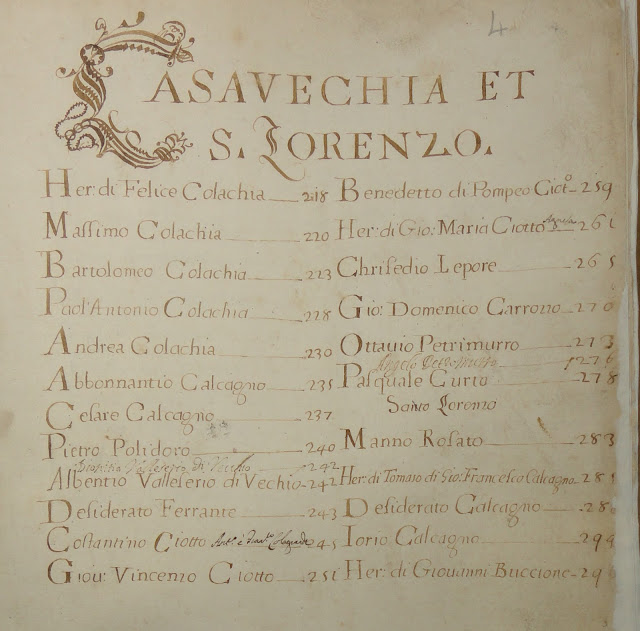 4
CASAVECHIA ET
S. LORENZO.
Her: di Felice Colachia 218
Massimo Colachia 220
Bartolomeo Colachia 223
Paol'Antonio Colachia 228
Andrea Colachia 230
Abbonnantio Calcagno 235
Cesare Calcagno 237
Pietro Polidoro 240
Vallelerio di Vechio 242
Albentio Vallelerio di Vechio 242
Desiderato Ferrante 243
Costantino Ciotto 245
Giou: Vincenzo Ciotto 251
Benedetto di Pompeo Ciot.º 259
Her: di Gio: Maria Ciotto 261
Chrisedio Lepore 265
Gio: Domenico Carrozzo 270
Ottauio Petrimurro 273
Angelo Petromurro 276
Pasquale Curto 278
Santo Lorenzo
Manno Rosato 283
Her: di Tomaso di Gio: Francesco Calcagno 285
Desiderato Calcagno 28
Iorio Calcagno 29
Her: di Giovanni Buccione 29